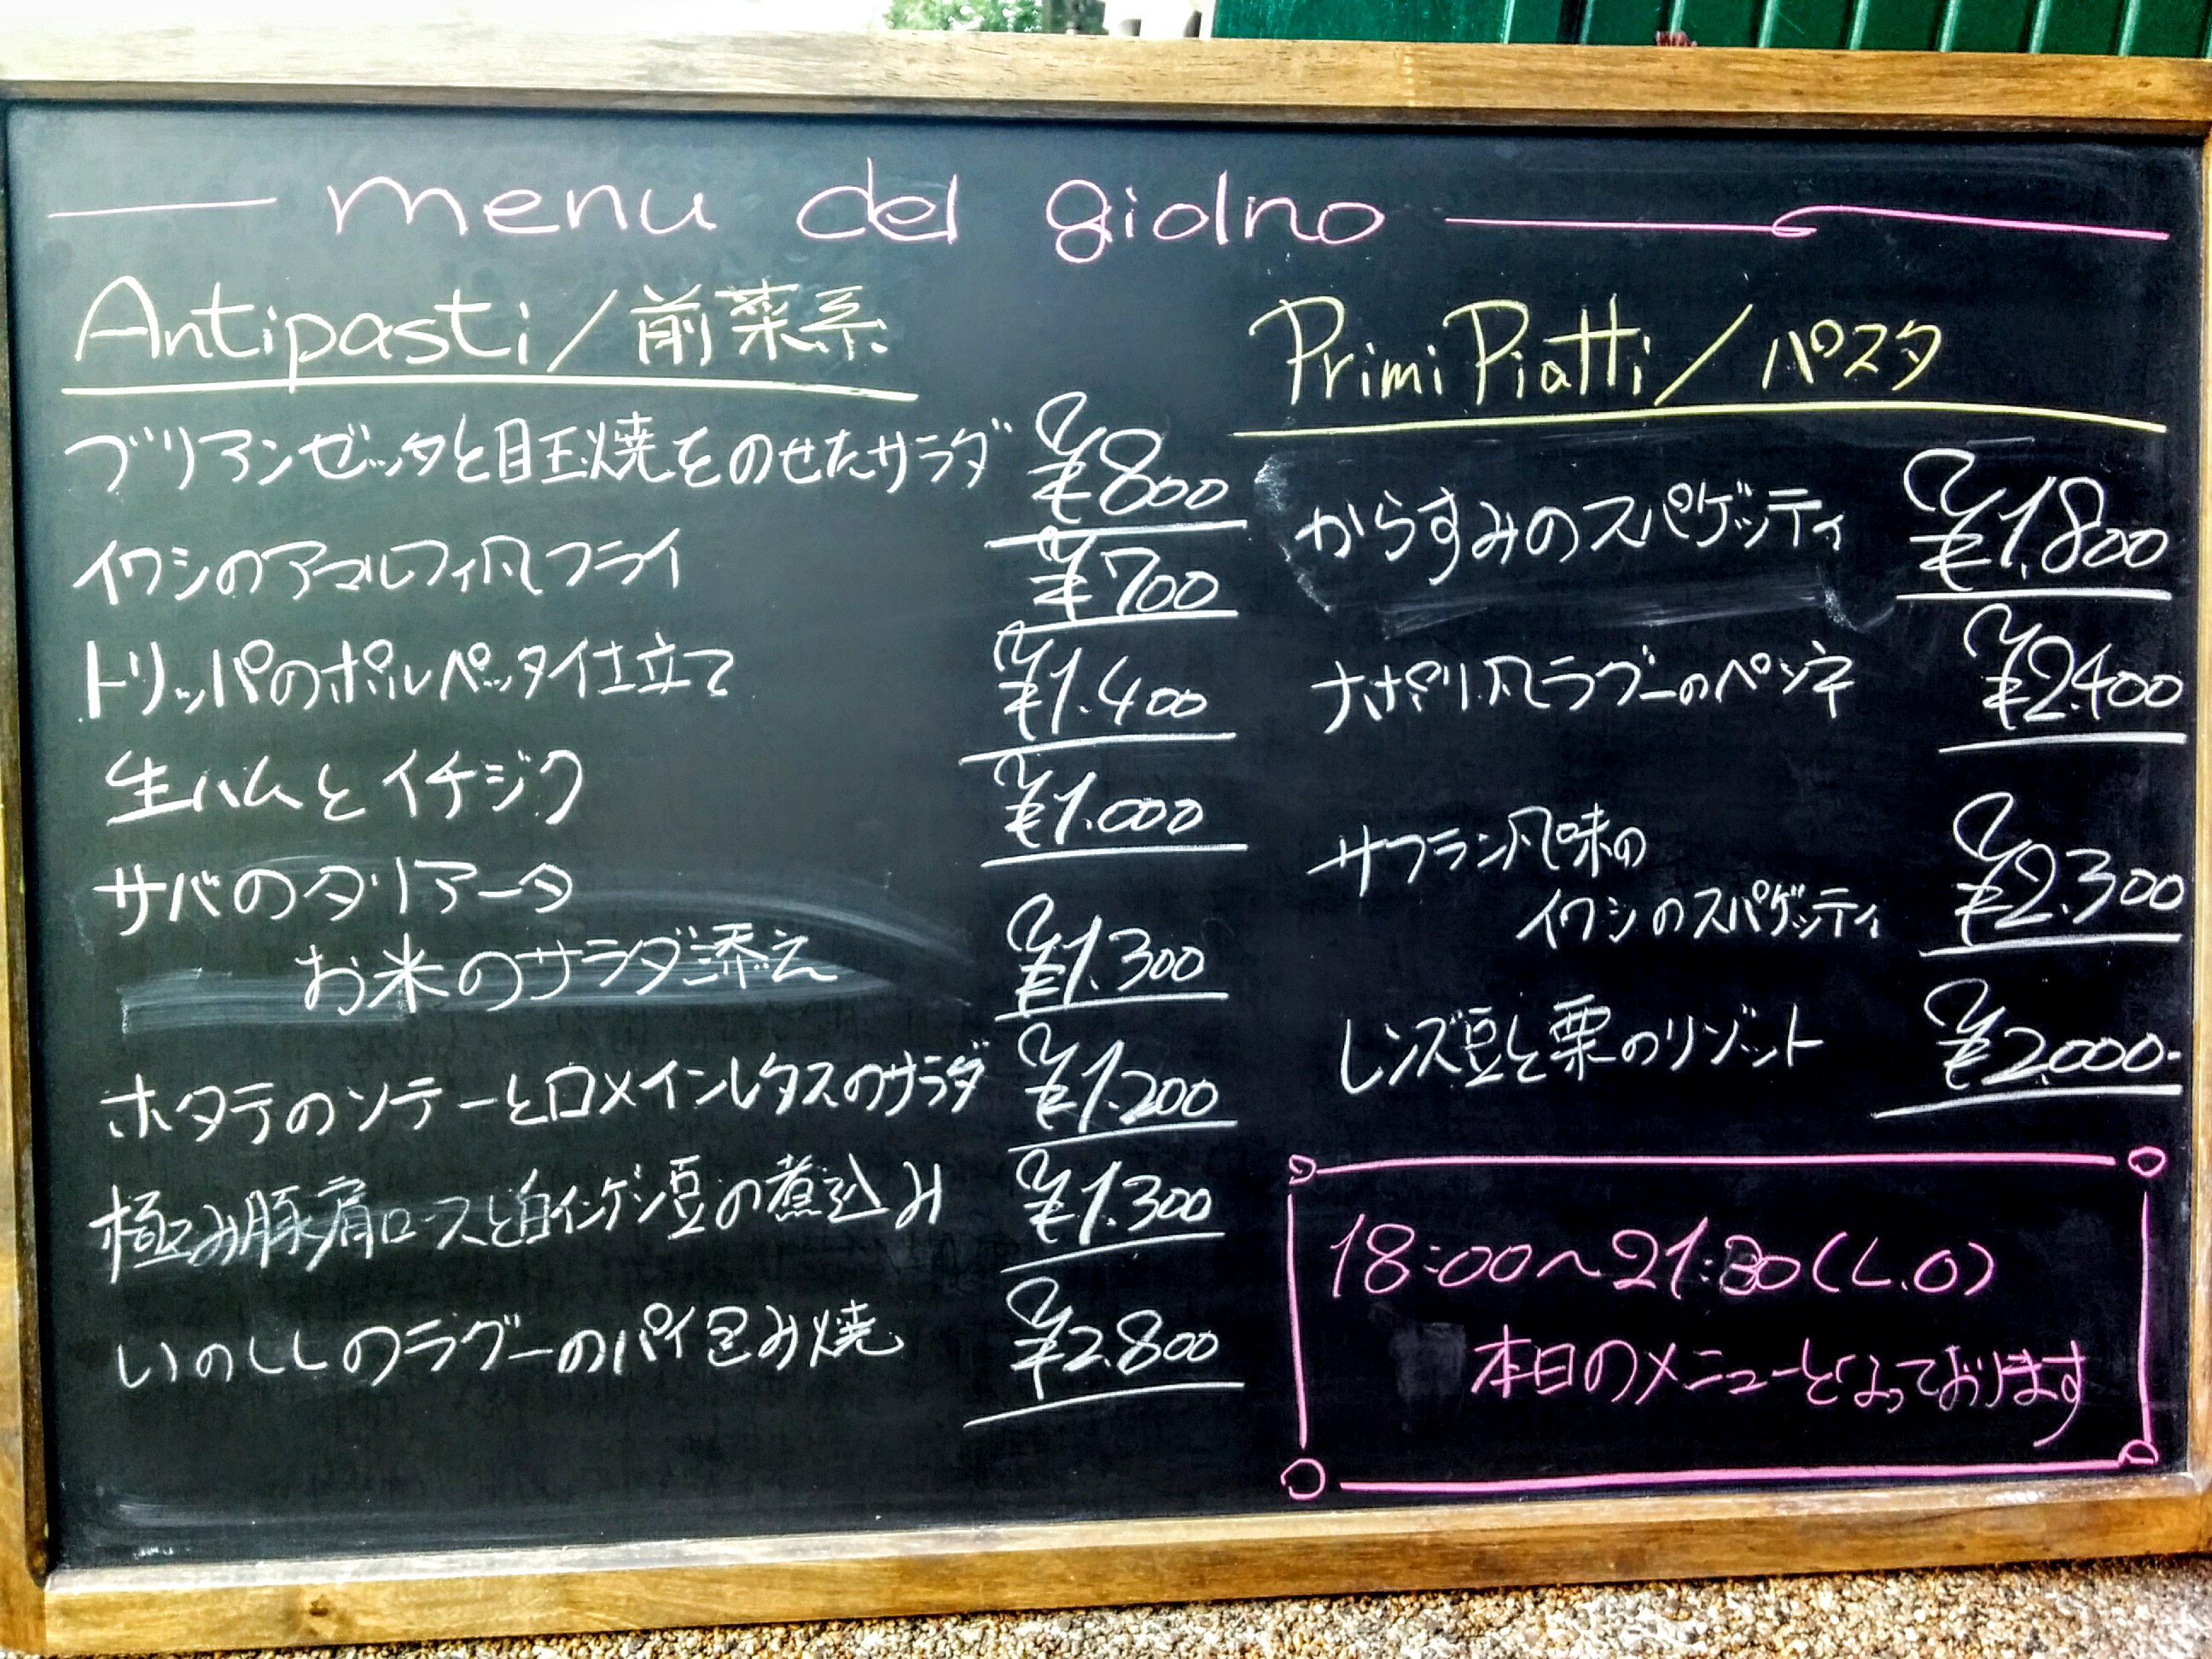 menu del giolno
Antipasti/前菜系
ブリアンゼッタと目玉焼をのせたサラダ ¥800
イワシのアマルフィ風フライ ¥700
トリッパのポルペッタ仕立て ¥1.400
生ハムとイチジク ¥1.000
サバのタリアータ
お米のサラダ添え ¥1.300
ホタテのソテーとロメインレタスのサラダ ¥1.200
極み豚肩ロースと白インゲン豆の煮込み ¥1.300
いのししのラグーのパイ包み焼 ¥2.800
Primi Piatti/パスタ
からすみのスパゲッティ ¥1.800
ナポリ風ラグーのペンネ ¥2.400
サフラン風味の
イワシのスパゲッティ ¥2.300
レンズ豆と栗のリゾット ¥2.000-
18:00~21:30(L.O)
本日のメニューとなっております